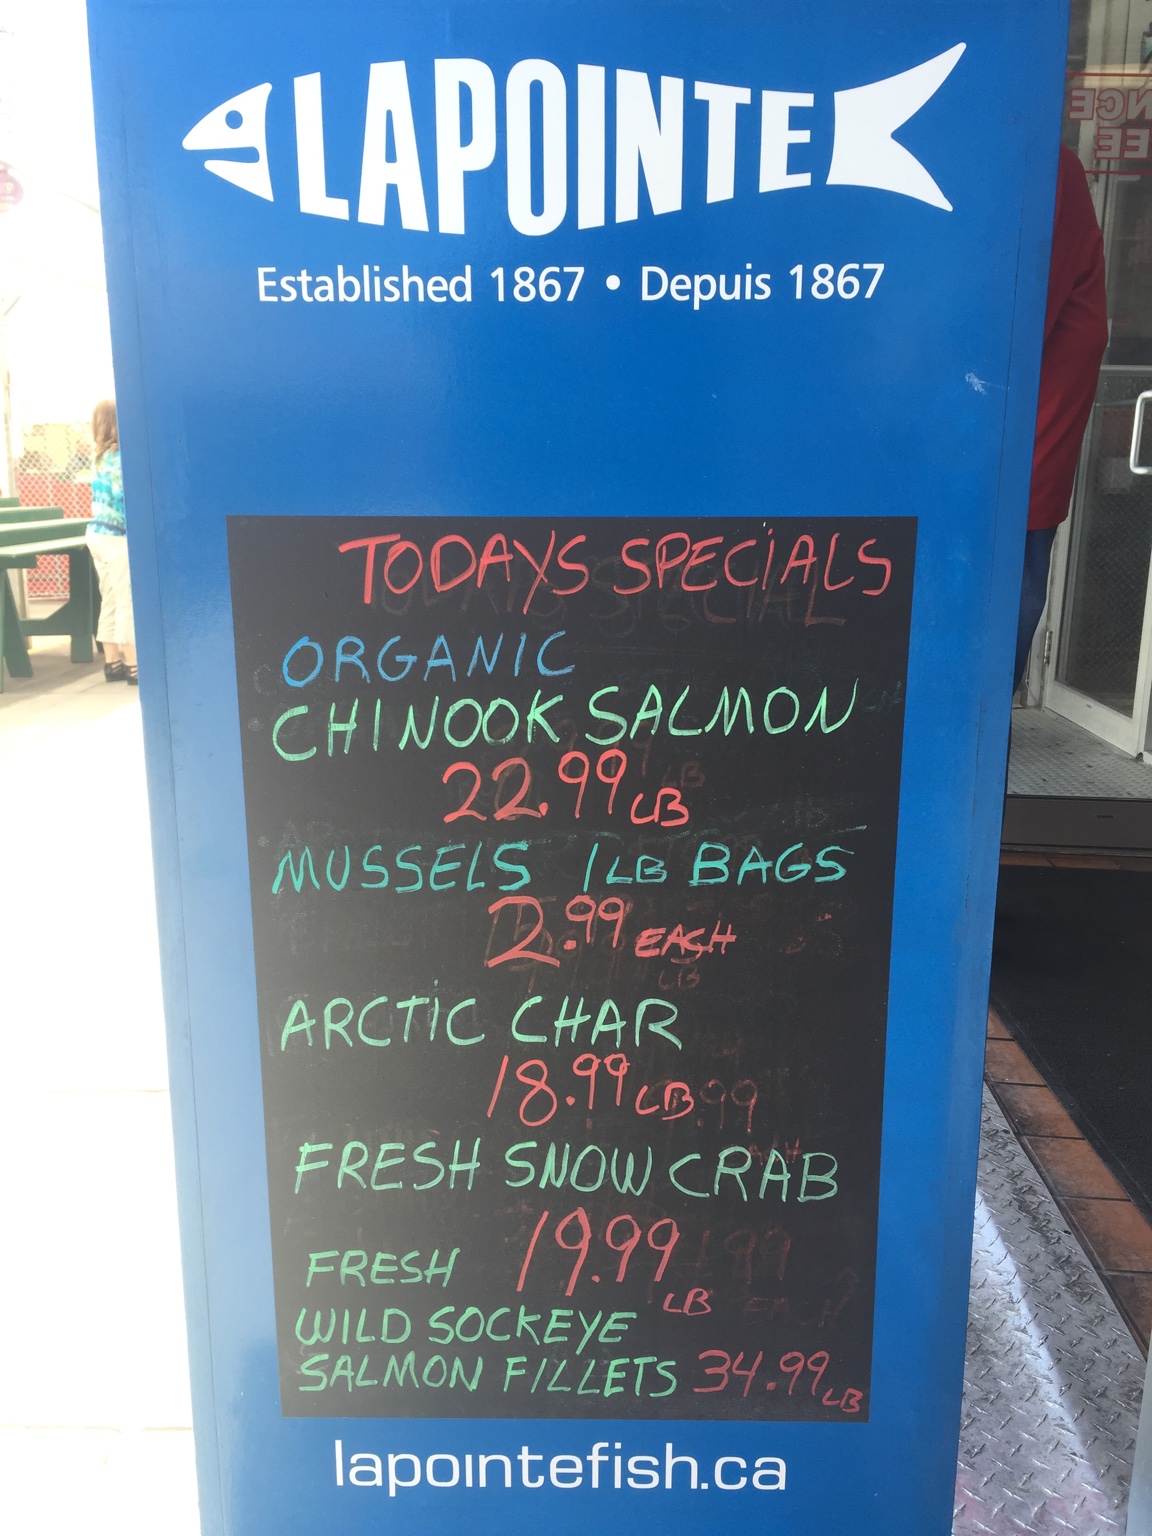 LAPOINTE
Established 1867 • Depuis 1867
TODAYS SPECIALS
ORGANIC
CHINOOK SALMON
22.99 LB
MUSSELS 1 LB BAGS
2.99 EACH
ARCTIC CHAR
18.99 LB
FRESH SNOW CRAB
19.99 LB
FRESH
WILD SOCKEYE
SALMON FILLETS 34.99 LB
lapointefish.ca